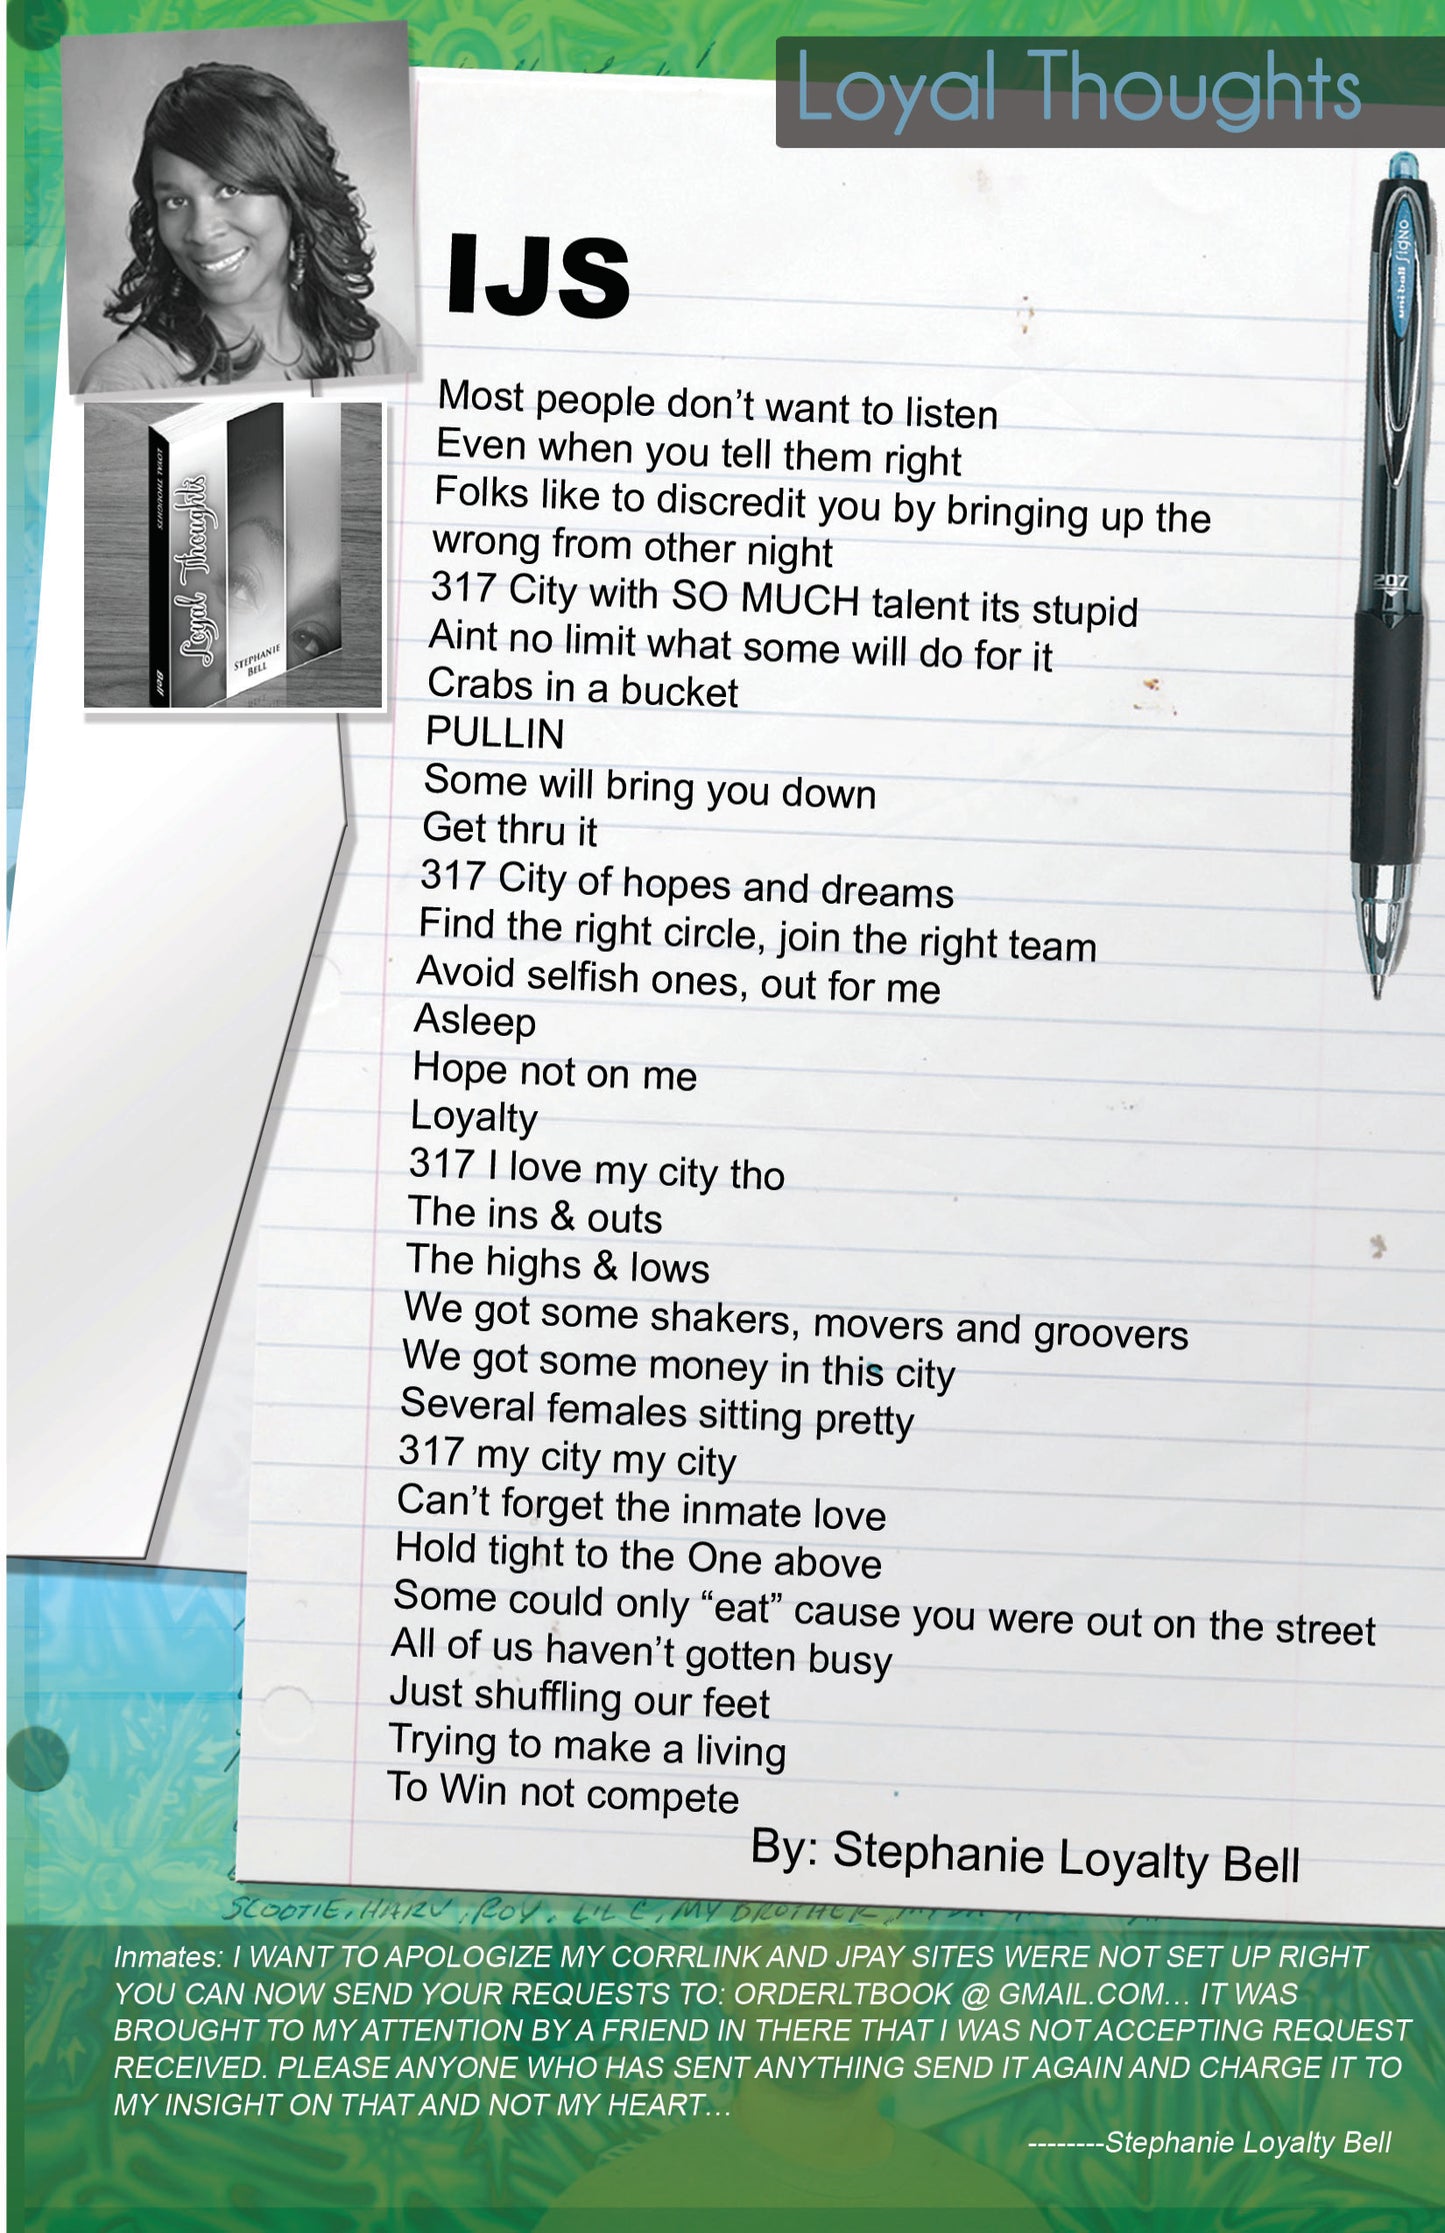 Loyal Thoughts
IJS
Most people don't want to listen
Even when you tell them right
Folks like to discredit you by bringing up the
wrong from other night
317 City with SO MUCH talent its stupid
Aint no limit what some will do for it
Crabs in a bucket
PULLIN
Some will bring you down
Get thru it
317 City of hopes and dreams
Find the right circle, join the right team
Avoid selfish ones, out for me
Asleep
Hope not on me
Loyalty
317 I love my city tho
The ins & outs
The highs & lows
We got some shakers, movers and groovers
We got some money in this city
Several females sitting pretty
317 my city my city
Can't forget the inmate love
Hold tight to the One above
Some could only “eat” cause you were out on the street
All of us haven't gotten busy
Just shuffling our feet
Trying to make a living
To Win not compete
By: Stephanie Loyalty Bell
LOYAL THOUGHTS
Bell
Loyal Thoughts
STEPHANIE
BELL
uni-ball SigNo
207
SCOOTIE, HARV, ROY, LIL C, MY BROTHER
Inmates: I WANT TO APOLOGIZE MY CORRLINK AND JPAY SITES WERE NOT SET UP RIGHT
YOU CAN NOW SEND YOUR REQUESTS TO: ORDERLTBOOK @ GMAIL.COM... IT WAS
BROUGHT TO MY ATTENTION BY A FRIEND IN THERE THAT I WAS NOT ACCEPTING REQUEST
RECEIVED. PLEASE ANYONE WHO HAS SENT ANYTHING SEND IT AGAIN AND CHARGE IT TO
MY INSIGHT ON THAT AND NOT MY HEART...
--------Stephanie Loyalty Bell